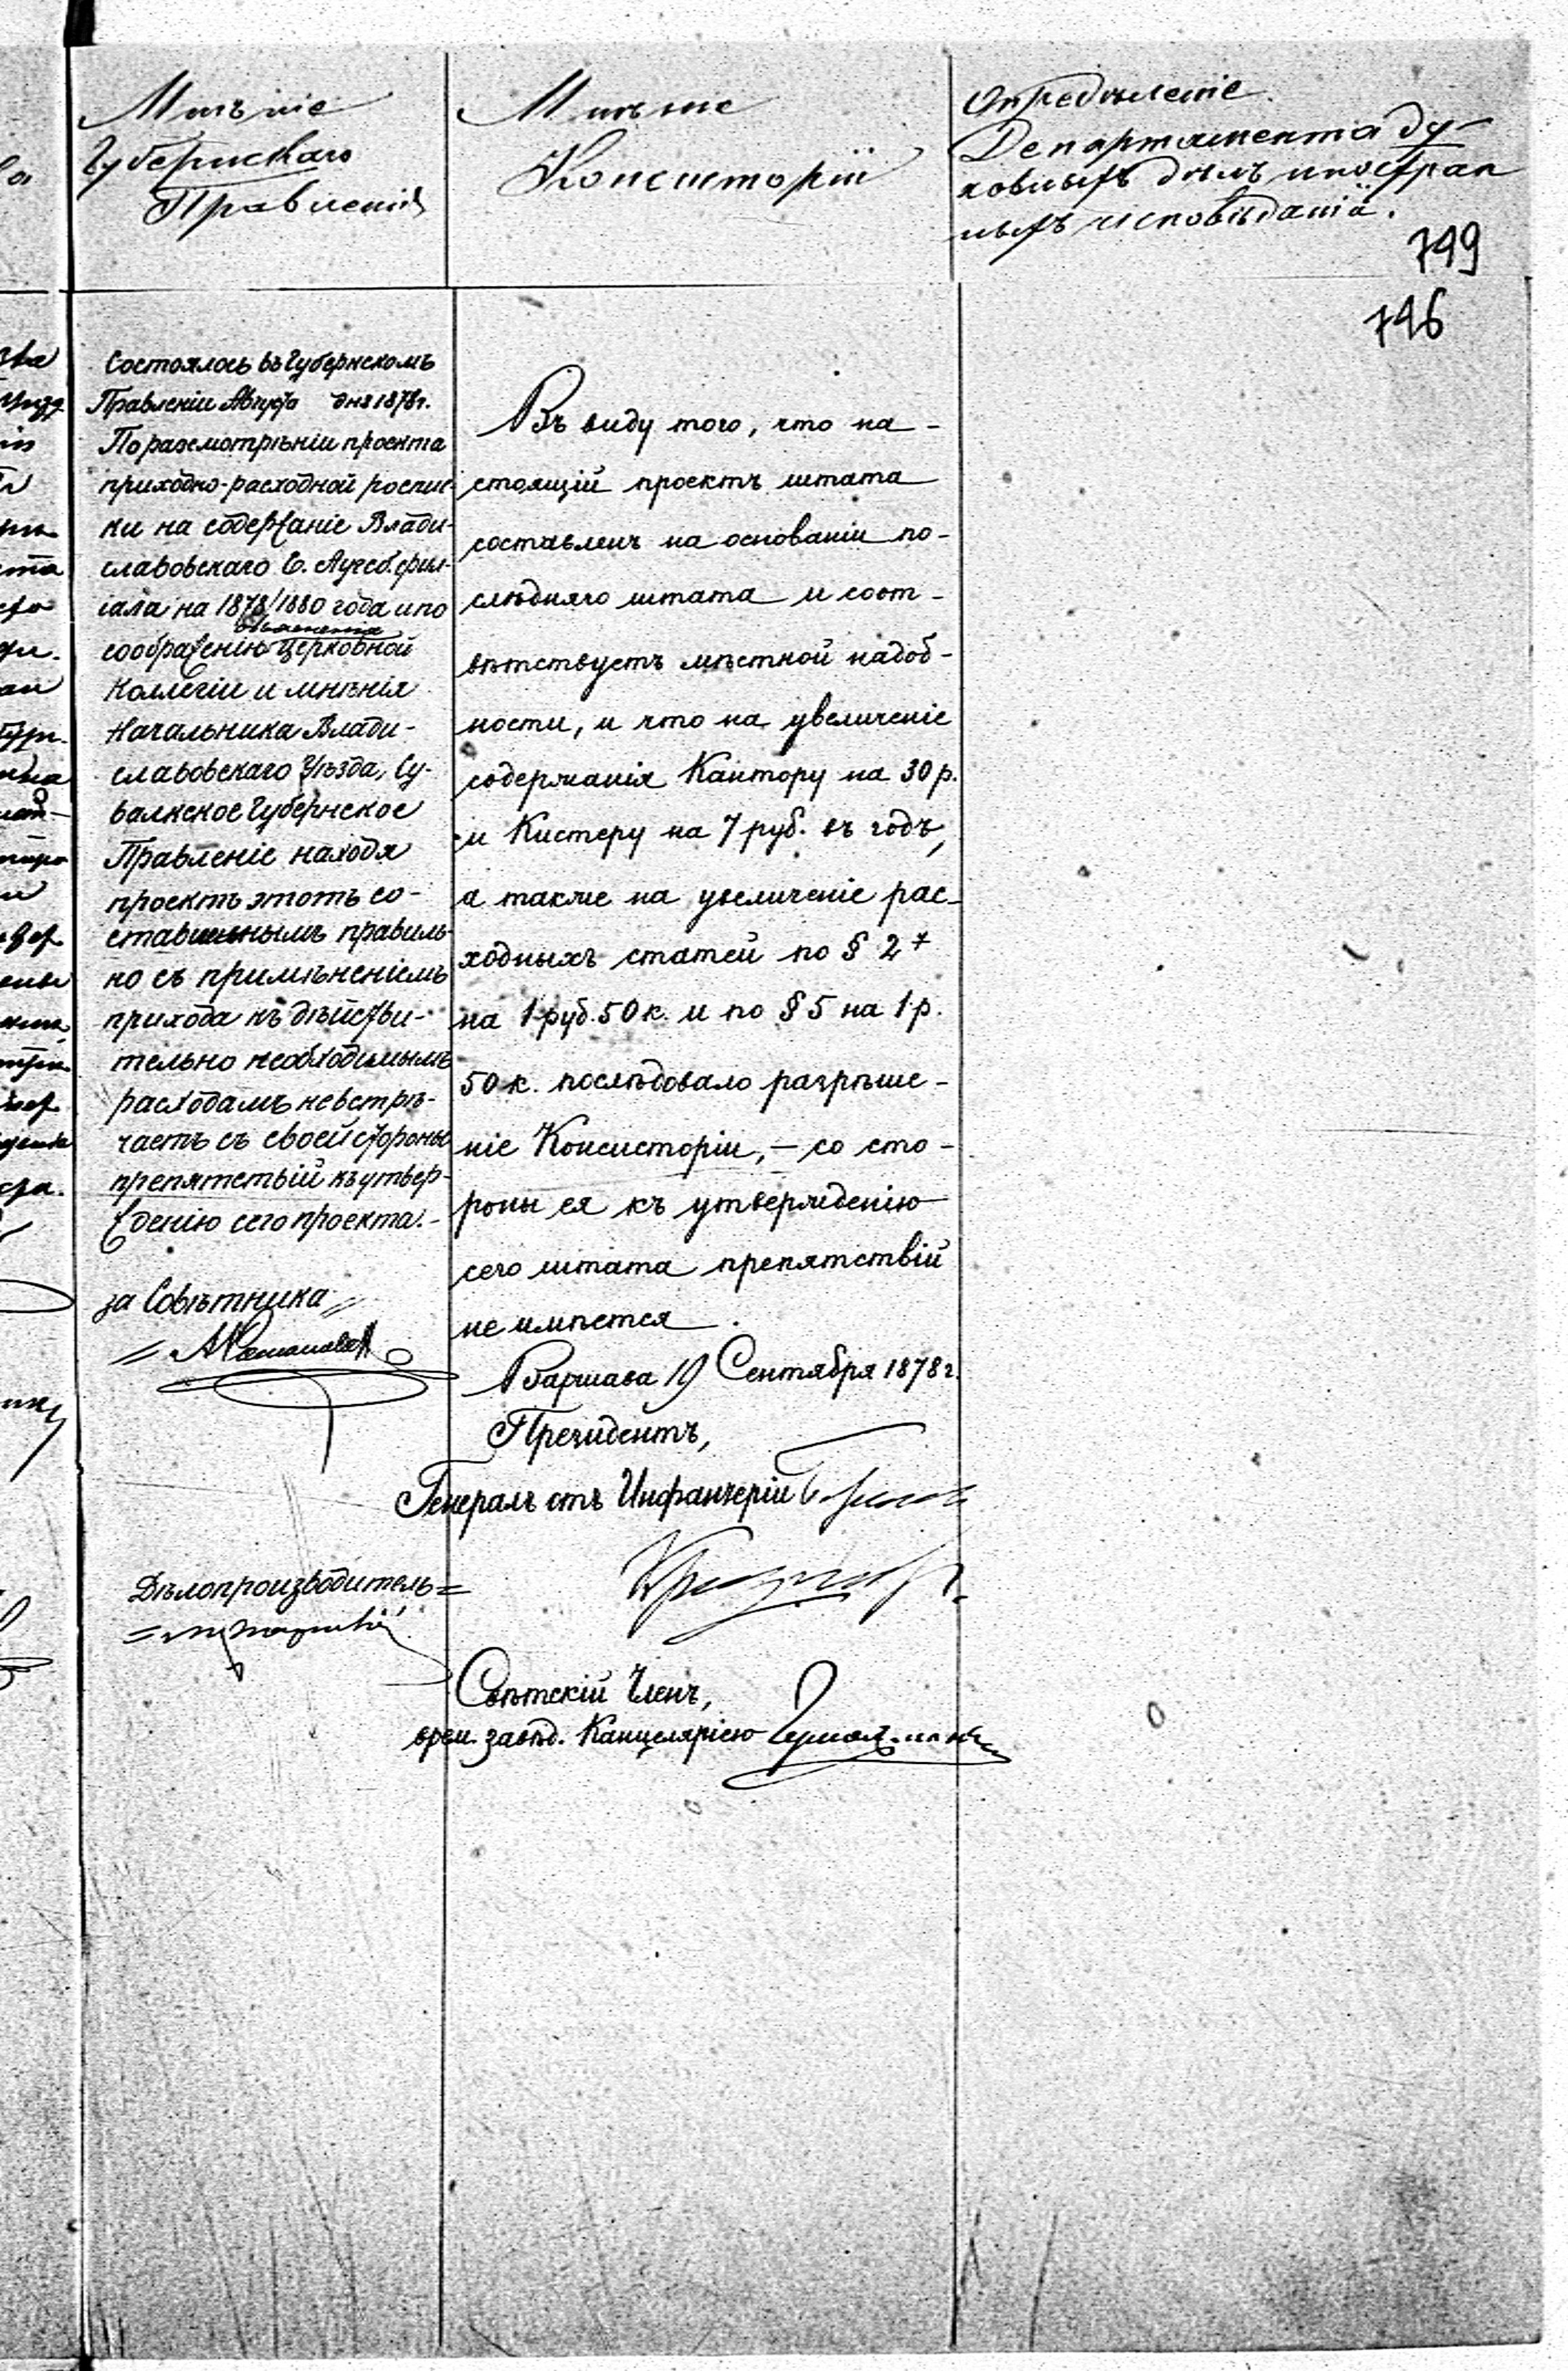 Мнѣніе
Губернскаго
Правленія
Мнѣніе
Консисторіи
Опредѣленіе
Департамента ду-
ховныхъ дѣлъ иностран
ныхъ исповѣданій.
749
746
Состоялось въ Губернскомъ
Правленіи Августа дня 1878 г.
По разсмотрѣніи проекта
приходно-расходной роспис-
ки на содержаніе Влади-
славовскаго Е. Аугсб. фил-
іала на 1878/1880 года и по
объясненія
соображенію Церковной
Коллегіи и мнѣнія
Начальника Влади-
славовскаго Уѣзда, Су-
валкское Губернское
Правленіе находя
проектъ этотъ со-
ставленнымъ правиль-
но съ примѣненіемъ
прихода къ дѣйстви-
тельно необходимымъ
расходамъ не встрѣ-
чаетъ съ своей стороны
препятствій къ утвер-
жденію сего проекта.-
за Совѣтника
Дѣлопроизводитель
Въ виду того, что на-
стоящій проектъ штата
составленъ на основаніи по-
слѣдняго штата и соот-
вѣтствуетъ мѣстной надоб-
ности, и что на увеличеніе
содержанія Кантору на 30 р.
и Кистеру на 7 руб. въ годъ,
а также на увеличеніе рас-
ходныхъ статей по § 2
на 1 руб. 50 к. и по § 5 на 1 р.
50 к. послѣдовало разрѣше-
ніе Консисторіи, – со сто-
роны ея къ утвержденію
сего штата препятствій
не имѣется.
Варшава 19 Сентября 1878 г.
Президентъ,
Генералъ отъ Инфантеріи
Свѣтскій Членъ,
врем. завѣд. Канцеляріею